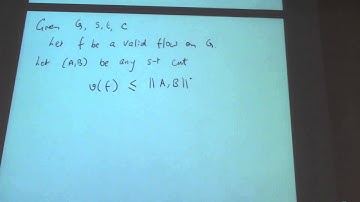 Given G, s, t, c
Let f be a valid flow on G.
Let (A,B) be any s-t cut
v(f) ≤ ||A,B||